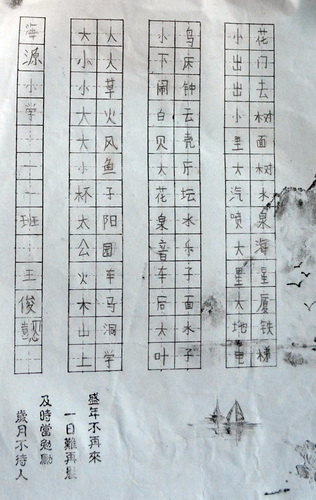 海源小学一一班王俊懿
大人
小火
小草
大火
大风
小鱼
杯子
太阳
公园
火车
木马
山洞
上学
小鸟
下床
闹钟
白云
贝壳
大厅
花坛
泉水
音乐
车子
后面
大水
叶子
小花
出门
出去
小树
里面
大树
汽水
喷泉
大海
星星
大厦
地铁
电梯
盛年不再來
一日難再晨
及時當勉勵
歲月不待人